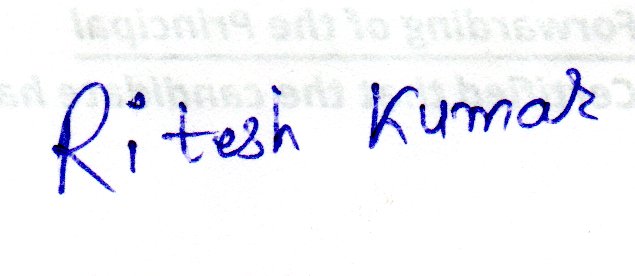 Forwarding of the Principal
Certified that the candidate ha
Ritesh Kumar